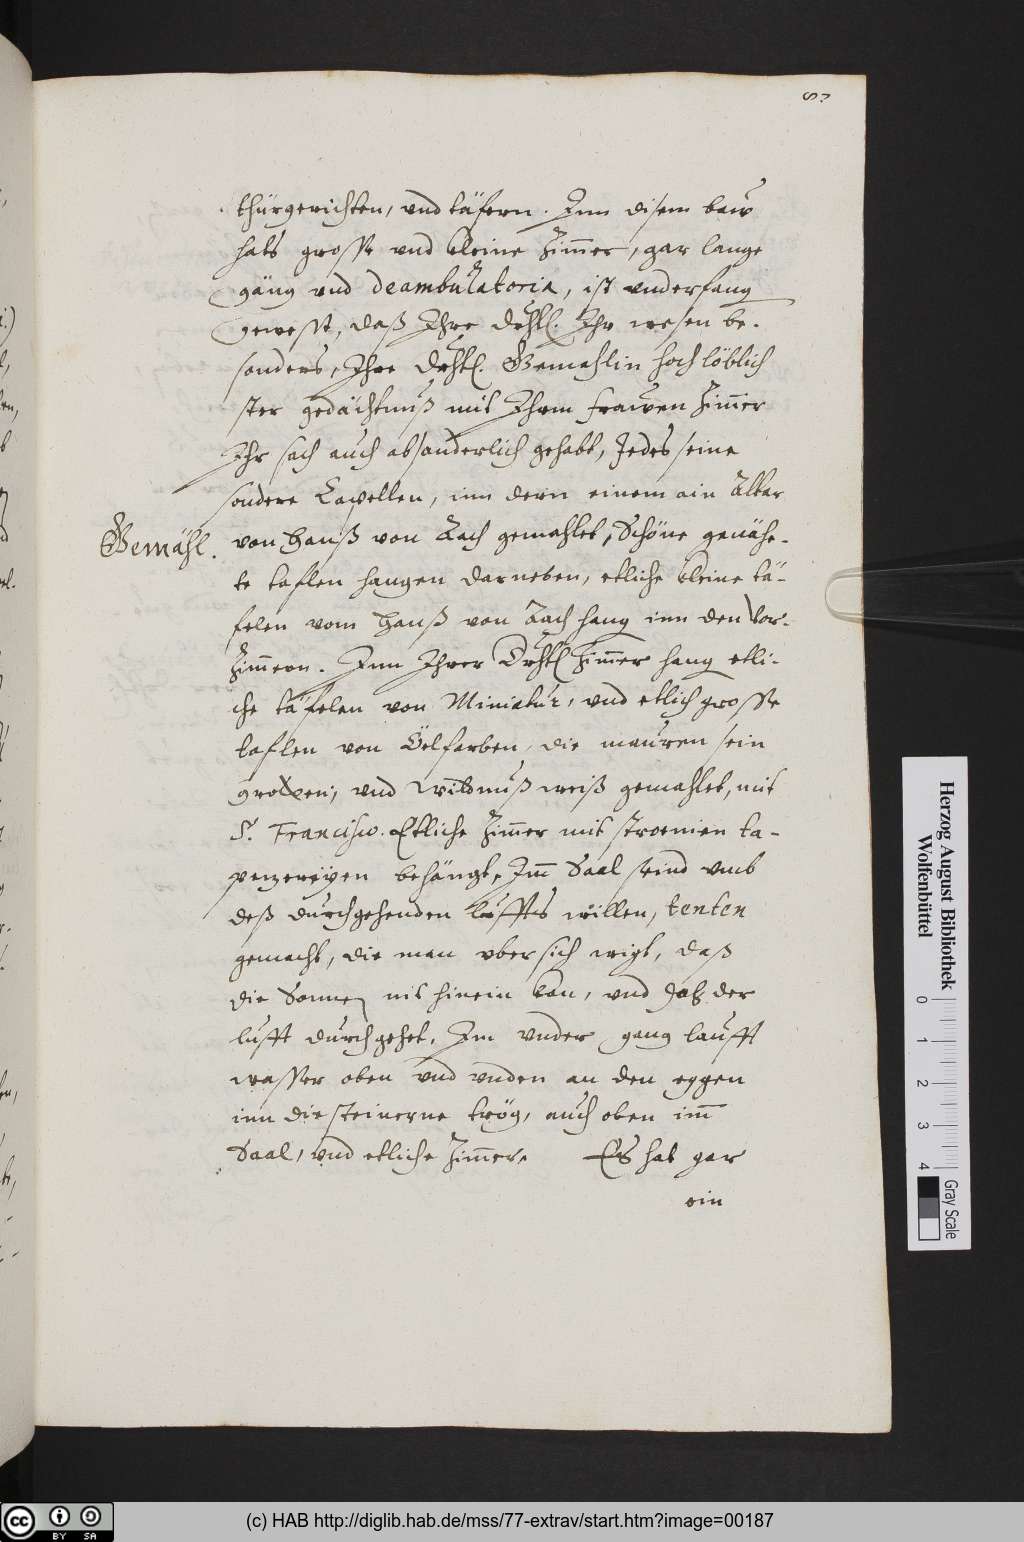 87
thürgerichten, vnd täfern. Inn disem baw
hats grosse vnd kleine Zim̅er, gar lange
gäng vnd deambulatoria, ist vnderfang
gewesst, daß Ihre Drhtl. Ihr wesen be-
sonders, Ihre Drhtl. Gemahlin hochlöblich
ster gedächtnuß mit Ihrem frawen Zim̅er
Ihr sach auch absonderlich gehabt, Jedes seine
sondere Capellen, inn dern einem ain Altar
Gemähl.
von Hanß von Aach gemahlet, Schöne genähe-
te taflen hangen darneben, etliche kleine tä-
felen vom Hanß von Aach hang inn den Vor-
Zim̅ern. Inn Ihrer Drhtl Zim̅er hang etli-
che täfelen von Miniatur, vnd etlich grosse
taflen von Ölfarben, die mauren sein
grotten, vnd Wildnuß weiß gemahlet, mit
S. Francisco. Etliche Zim̅er mit stroenien ta-
pezereyen behängt, Im̅ Saal seind vmb
deß durchgehenden luffts willen, tenten
gemacht, die man vbersich wigt, daß
die Sonnen nit hinein kan, vnd doch der
lufft durchgehet, Im vnder gang laufft
wasser oben vnd vnden an den eggen
inn die steinerne trög, auch oben im̅
Saal, vnd etliche Zim̅er. Es hat gar
ein
Herzog August Bibliothek
Wolfenbüttel
0 1 2 3 4
Gray Scale
cc BY SA
(c) HAB http://diglib.hab.de/mss/77-extrav/start.htm?image=00187